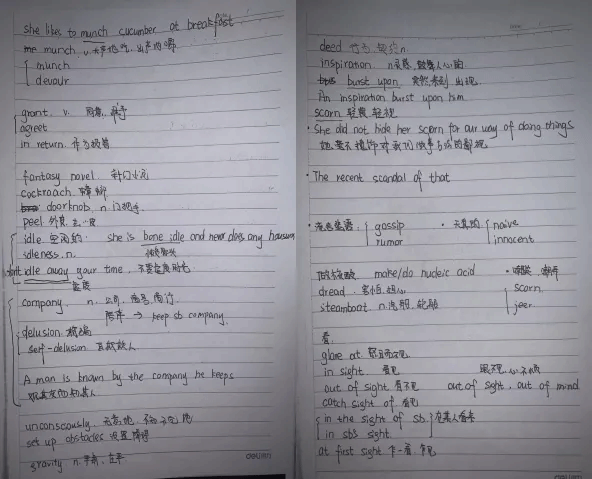 she likes to munch cucumber at breakfast
munch v.
munch
devour
grant. v. 同意, 授予
agreet
in return 作为报答
fantasy novel 科幻小说
cockroach 蟑螂
doorknob. n. 门把手
peel 外皮 去皮
idle 空闲的 she is bone idle and never does any housework
idleness. n.
idle away your time. 不要虚度时光
虚度
company. n. 公司, 商号, 商行
陪伴 → keep sb company.
delusion. 欺骗
self-delusion 自欺欺人
A man is known by the company he keeps
观其友而知其人
unconscously. 无意地, 不知不觉地
set up obstacles 设置障碍
gravity n.
deluam
deed 行为 n.
inspiration n灵感, 鼓舞人心的
burst upon 突然来到 出现
An inspiration burst upon him.
scorn 轻蔑 轻视
• She did not hide her scorn for our way of doing things
她毫不掩饰对我们做事方式的鄙视
• The recent scandal of that
• 流言蜚语 gossip • 天真的 naive
rumor innocent
make/do nucleic acid • 嘲笑 嘲弄
dread. 害怕, 担心 scorn.
steamboat n. 汽船, 轮船 jeer.
看
glare at 怒目而视
in sight. 看见 眼不见, 心不烦
out of sight 看不见 out of sight, out of mind
catch sight of. 看见
in the sight of sb. 在某人看来
in sb's sight.
at first sight 乍一看, 乍见